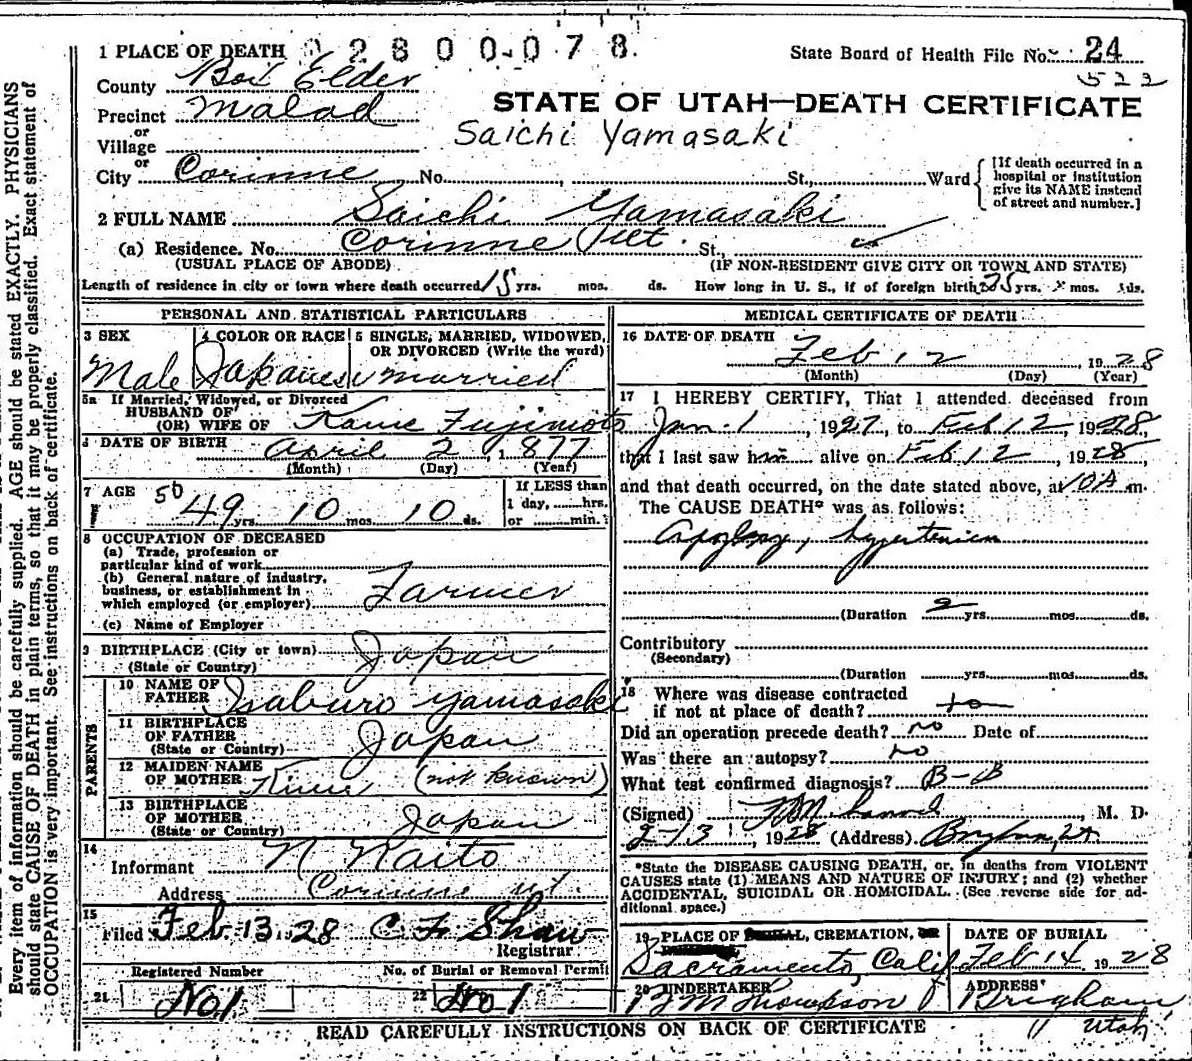 Every item of information should be carefully supplied. AGE should be stated EXACTLY. PHYSICIANS
should state CAUSE OF DEATH in plain terms, so that it may be properly classified. Exact statement of
OCCUPATION is very important. See instructions on back of certificate.
1 PLACE OF DEATH 0 2 8 0 0 0 0 7 8.
State Board of Health File No. 24
522
County Box Elder
STATE OF UTAH—DEATH CERTIFICATE
Precinct Malad
or
Saichi Yamasaki
Village
or
City Corinne No. , St., Ward
[If death occurred in a
hospital or institution
give its NAME instead
of street and number.]
2 FULL NAME Saichi Yamasaki
(a) Residence. No. Corinne Ut. St.,
(USUAL PLACE OF ABODE) (IF NON-RESIDENT GIVE CITY OR TOWN AND STATE)
Length of residence in city or town where death occurred 15 yrs. mos. ds. How long in U. S., if of foreign birth 25 yrs. mos. ds.
PERSONAL AND STATISTICAL PARTICULARS
3 SEX 4 COLOR OR RACE 5 SINGLE, MARRIED, WIDOWED,
OR DIVORCED (Write the word)
Male Japanese married
5a If Married, Widowed, or Divorced
HUSBAND OF
(OR) WIFE OF Kame Fujimoto
6 DATE OF BIRTH April 2, 1877
(Month) (Day) (Year)
7 AGE 50 49 yrs. 10 mos. 10 ds.
If LESS than
1 day, hrs.
or min.
8 OCCUPATION OF DECEASED
(a) Trade, profession or
particular kind of work
(b) General nature of industry,
business, or establishment in
which employed (or employer) Farmer
(c) Name of Employer
9 BIRTHPLACE (City or town)
(State or Country) Japan
PARENTS
10 NAME OF
FATHER Isaburo Yamasaki
11 BIRTHPLACE
OF FATHER
(State or Country) Japan
12 MAIDEN NAME
OF MOTHER (not known)
13 BIRTHPLACE
OF MOTHER
(State or Country) Japan
14
Informant N Naito
Address Corinne ut.
15
Filed Feb. 13 1928 C F Shaw
Registrar
Registered Number No. of Burial or Removal Permit
21 No. 1 22 No 1
MEDICAL CERTIFICATE OF DEATH
16 DATE OF DEATH
Feb 12, 1928
(Month) (Day) (Year)
17 I HEREBY CERTIFY, That I attended deceased from
Jan. 1, 1927, to Feb 12, 1928,
that I last saw him alive on Feb 12, 1928,
and that death occurred, on the date stated above, at 10 A m.
The CAUSE DEATH* was as follows:
Apoplexy, hypertension
(Duration 2 yrs. mos. ds.
Contributory
(Secondary)
(Duration yrs. mos. ds.
18 Where was disease contracted
if not at place of death?
Did an operation precede death? no Date of
Was there an autopsy? no
What test confirmed diagnosis?
(Signed) , M. D.
2-13, 1928 (Address) Brigham, Ut
*State the DISEASE CAUSING DEATH, or, in deaths from VIOLENT
CAUSES state (1) MEANS AND NATURE OF INJURY; and (2) whether
ACCIDENTAL, SUICIDAL OR HOMICIDAL. (See reverse side for ad-
ditional space.)
19 PLACE OF BURIAL, CREMATION, OR DATE OF BURIAL
Sacramento, Calif Feb 14 1928
20 UNDERTAKER ADDRESS
Thompson Brigham
Utah
READ CAREFULLY INSTRUCTIONS ON BACK OF CERTIFICATE